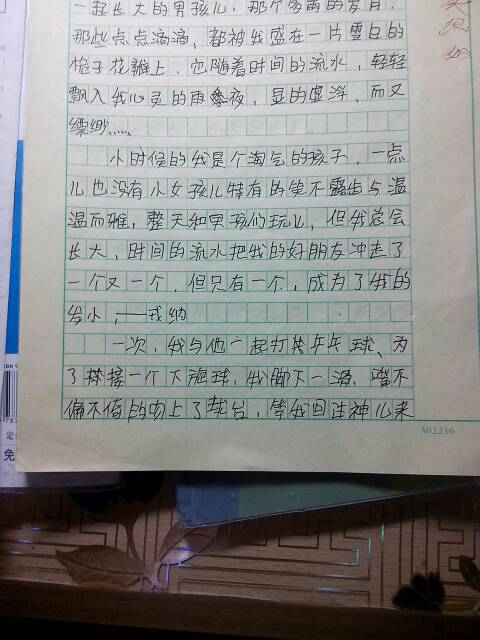 一起长大的男孩儿，那个多雨的岁月，
那些点点滴滴，都被我盛在一片雪白的
栀子花瓣上，它随着时间的流水，轻轻
飘入我心灵的雨夜，显的虚浮，而又
缥缈……
小时候的我是个淘气的孩子，一点
儿也没有小女孩儿特有的笑不露齿与温
温而雅，整天和男孩们玩儿，但我总会
长大，时间的流水把我的好朋友冲走了
一个又一个，但只有一个，成为了我的
发小，——戎纳
一次，我与他一起打乒乓球、为
了接一个下海球，我脚下一滑，嘴不
偏不倚的吻上了球台，等我回过神儿来
302216
定
免